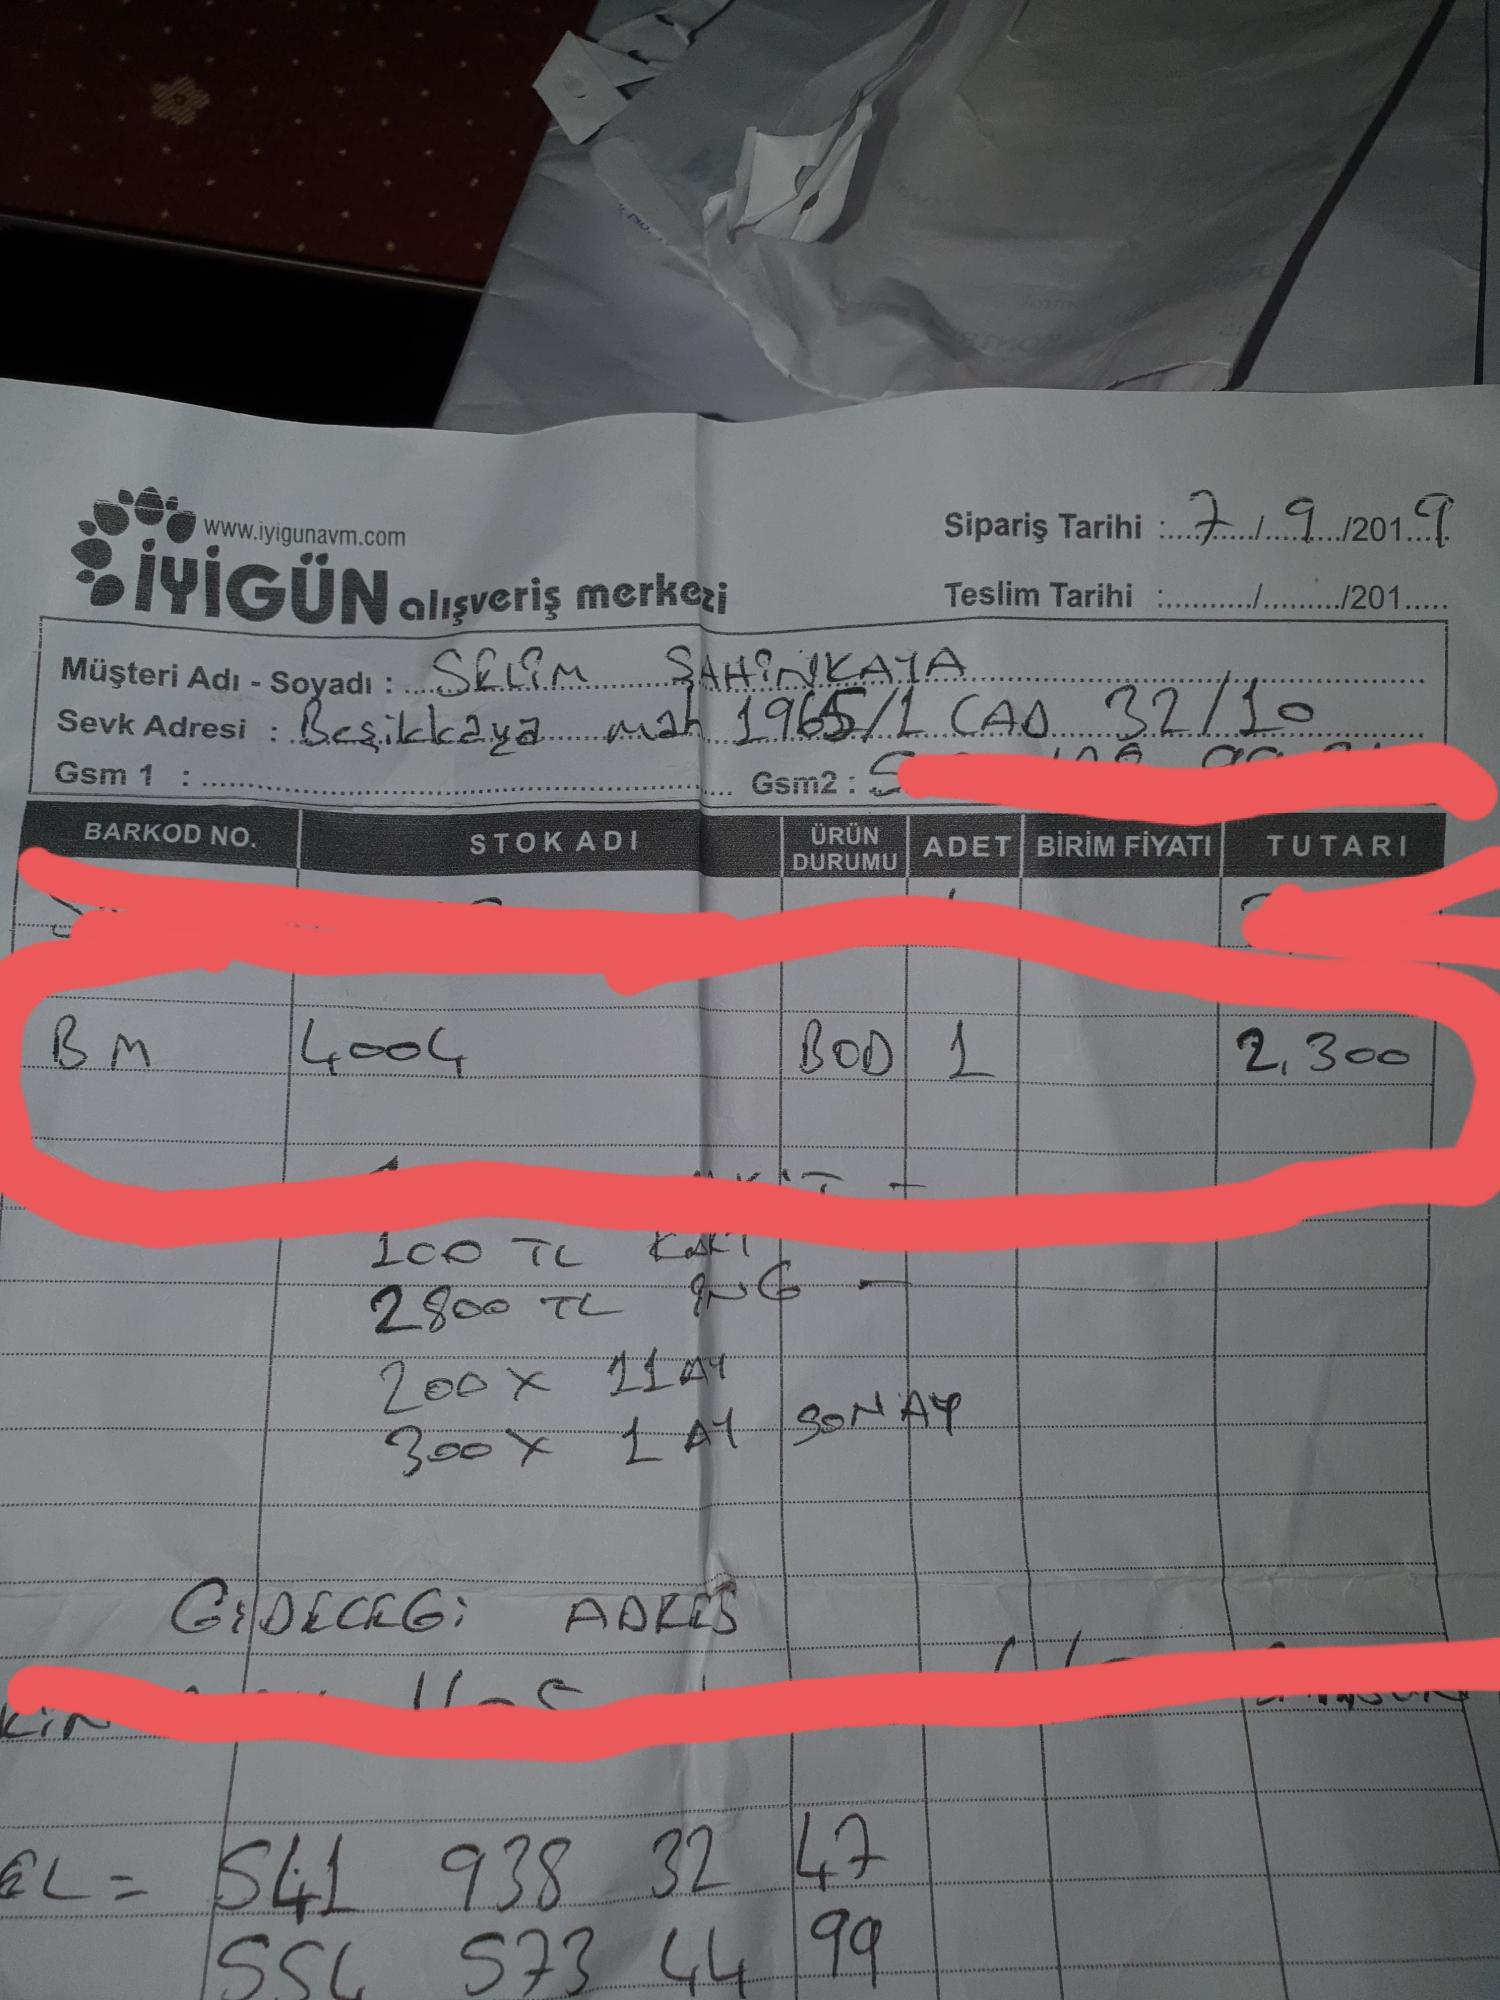 www.iyigunavm.com
İYİGÜN alışveriş merkezi
Sipariş Tarihi : 7 / 9 /2019
Teslim Tarihi :........../........./201.....
Müşteri Adı - Soyadı : SELİM ŞAHİNKAYA
Sevk Adresi : Beşikkaya mah 1965/1 CAD 32/10
Gsm 1 : Gsm2 : 5
BARKOD NO. STOK ADI ÜRÜN DURUMU ADET BİRİM FİYATI TUTARI
BM 4004 BOD 1 2,300
100 TL KART
2800 TL İNG -
200 X 11 AY
300 X 1 AY SON AY
GİDECEGİ ADRES
EL = 541 938 32 47
554 573 44 99